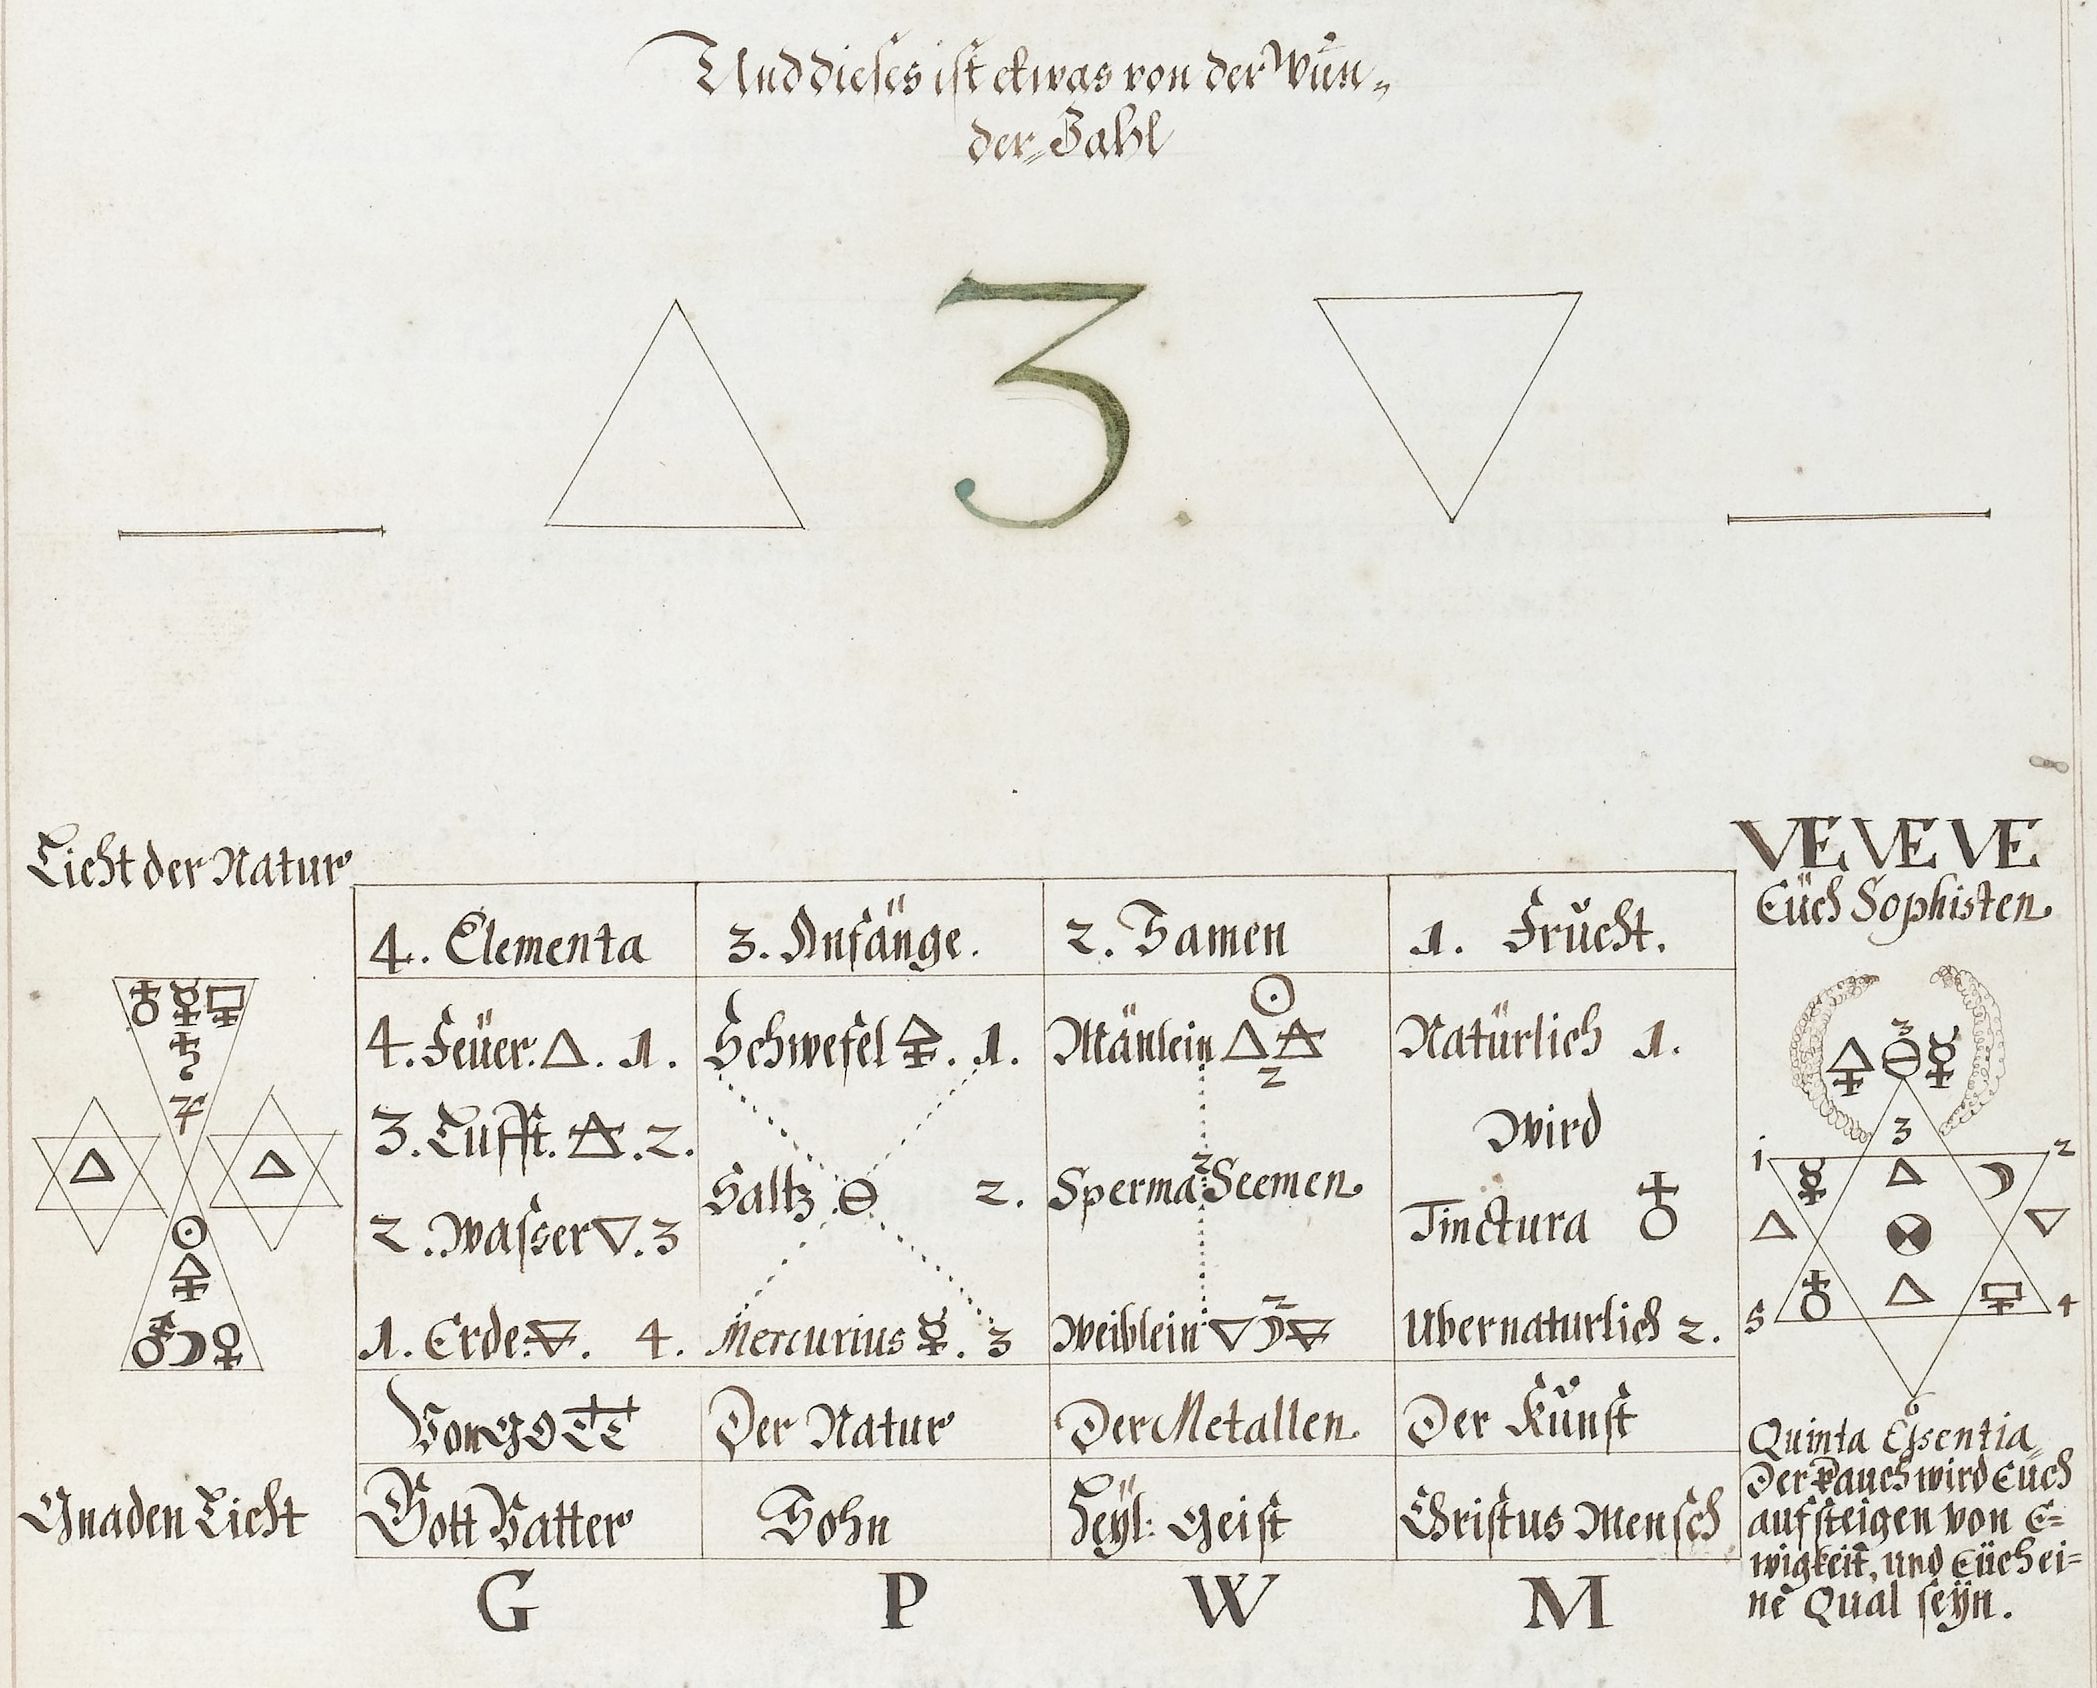 Und dieses ist etwas von der Wŭn=
der=Zahl
△ 3. ▽
Licht der Natur
4. Elementa
3. Anfänge.
2. Samen
1. Frŭcht.
4. Feüer. 🜂. 1.
3. Lufft. 🜁. 2.
2. Wasser 🜄. 3
1. Erde. 🜃. 4.
Schwefel 🜍. 1.
Saltz 🜔 2.
Mercurius ☿. 3
☉
Mänlein 🜂 🜁
2
2
Sperma Seemen
2
Weiblein 🜄 ☽ 🜃
Natürlich 1.
Wird
Tinctura ♁
Ubernaturlich 2.
Von GOTT
Der Natur
Der Metallen
Der Kŭnst
Gnaden Licht
Gott Vatter
Sohn
Heÿl: Geist
Christus Mensch
G P W M
VE VE VE
Eüch Sophisten
3
🜍 🜔 ☿
3
1 2
☿ △ ☽
△ ▽
♁ △
5 4
6
Quinta Essentia
Der Rauch wird Euch
aufsteigen von E=
wigkeit, und Eüch ei=
nē Qual seÿn.
♁ ☿
♄
♃
△ △
☉
🜍
♂ ☽ ♀